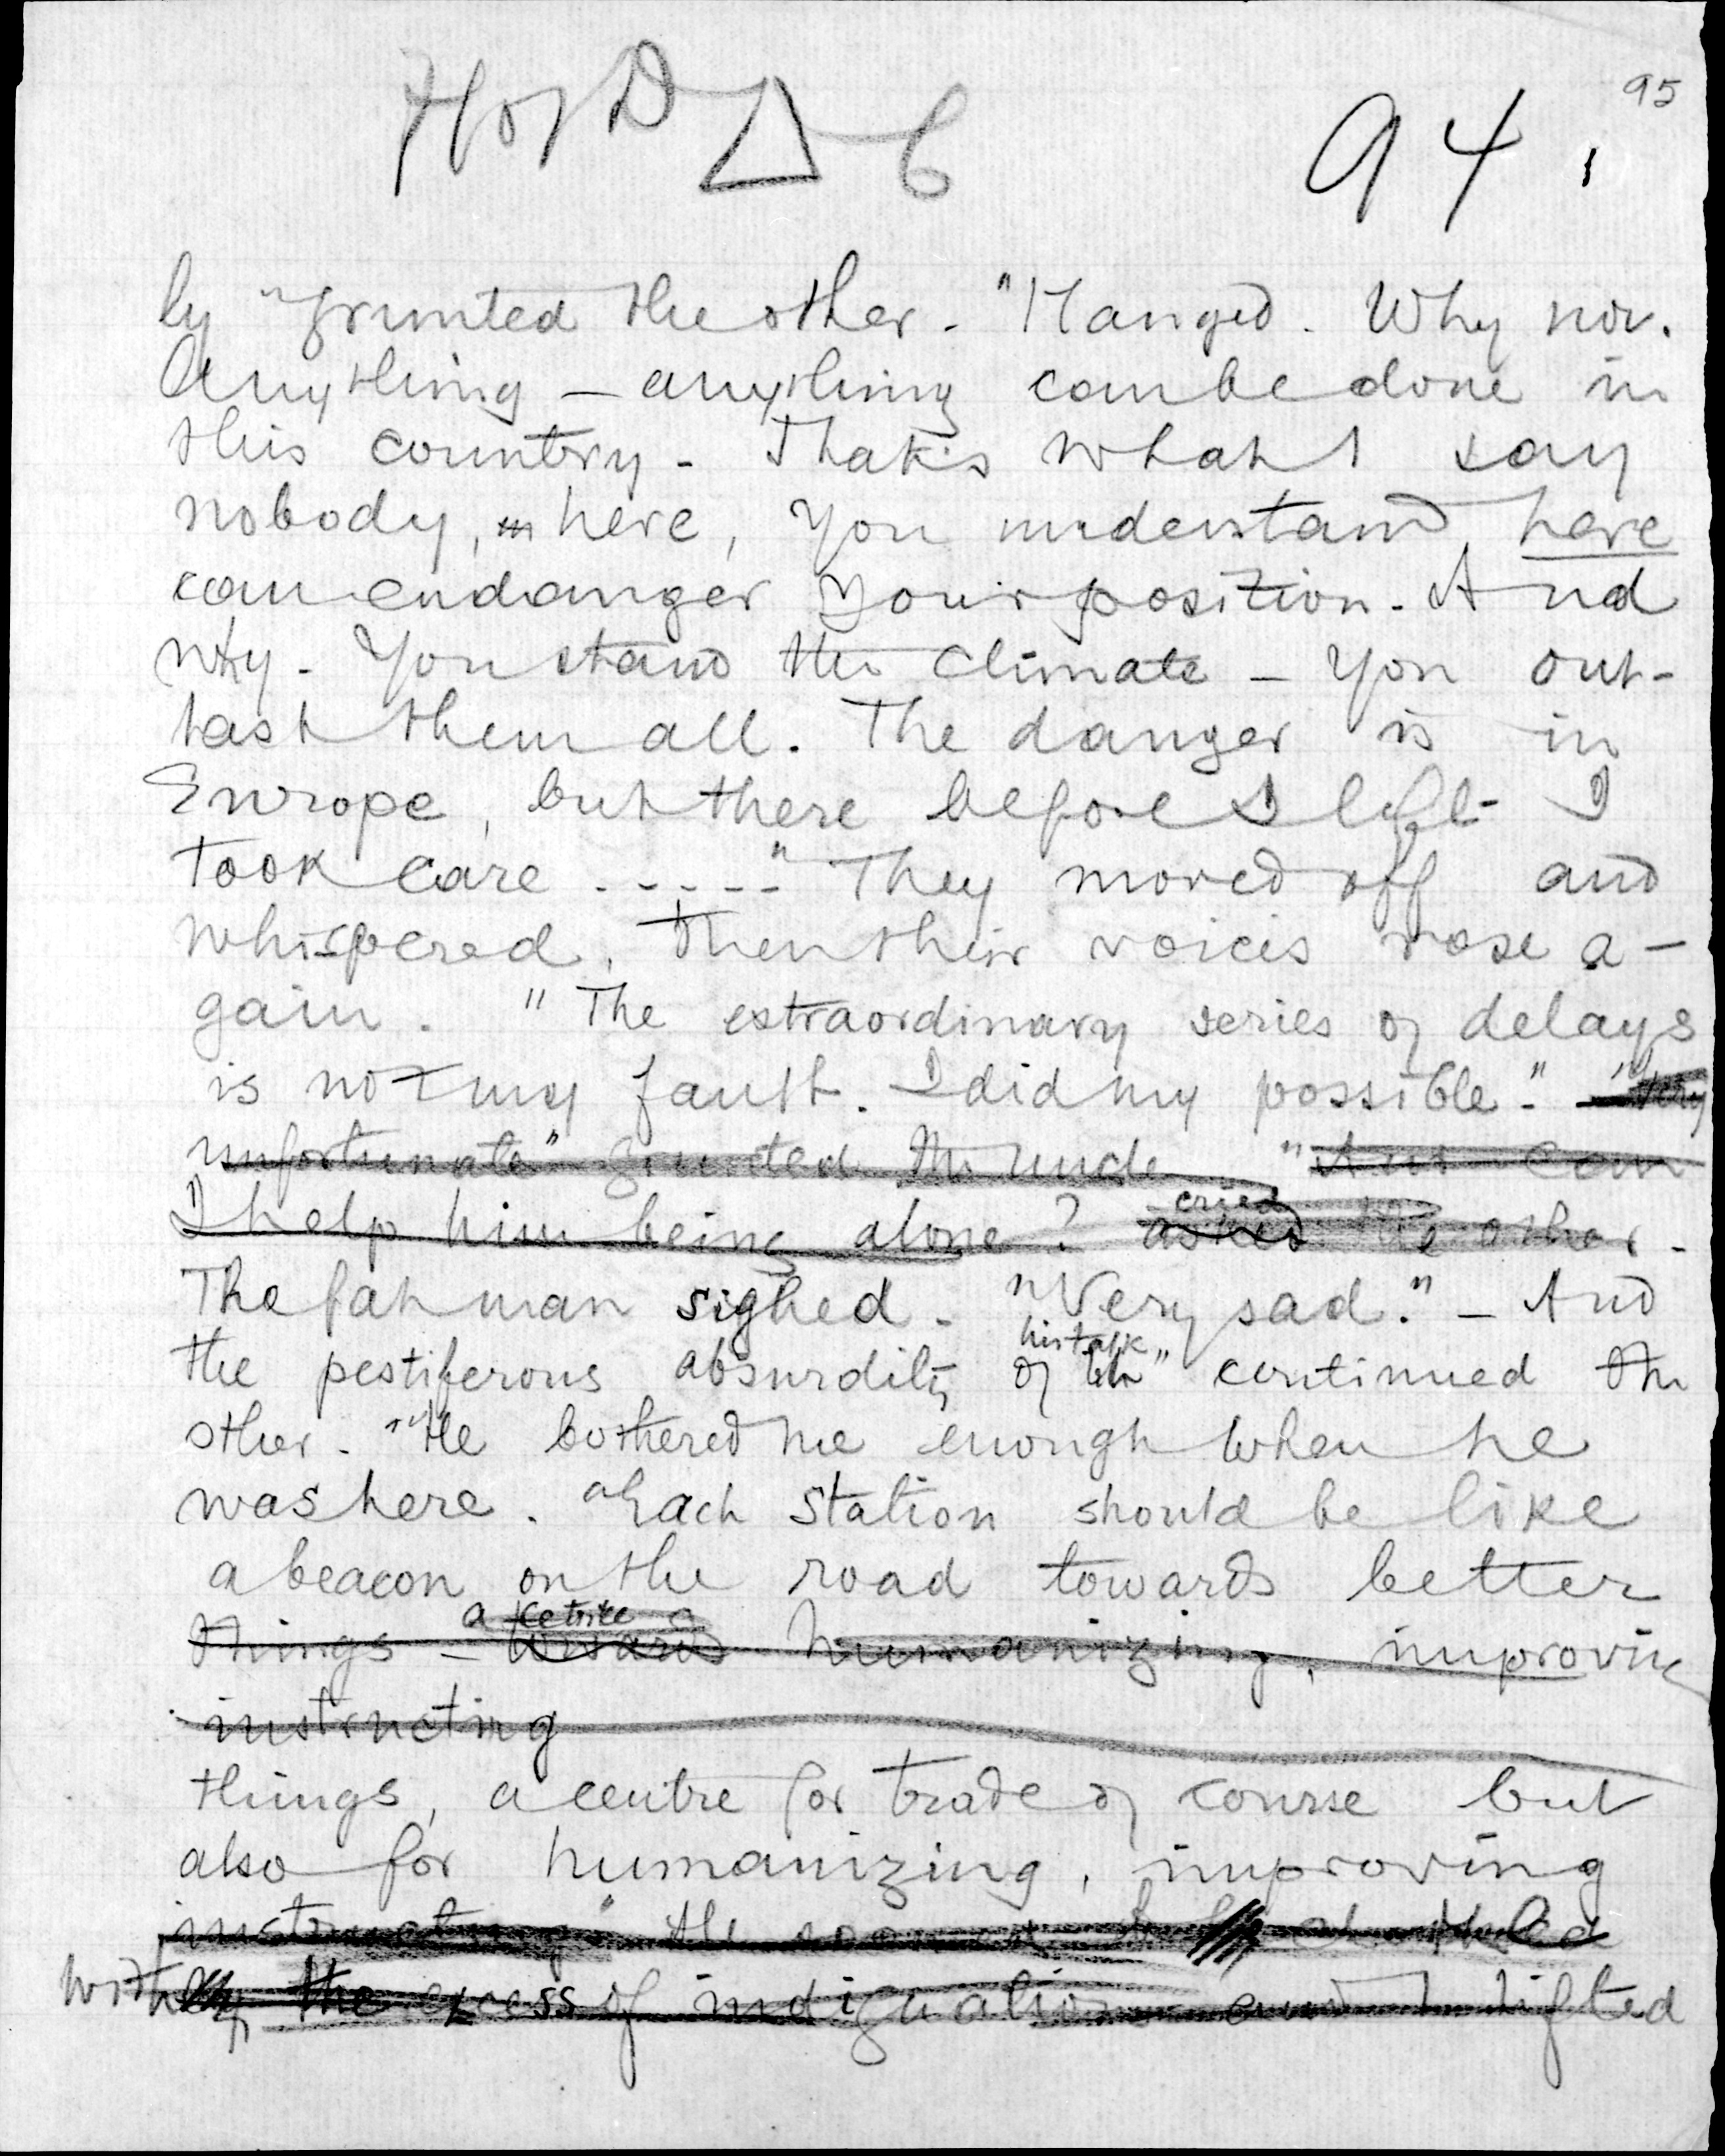 H of D Δ 6
94.
95
ly" grunted the other. "Hanged. Why not.
Anything — anything can be done in
this country. That's what I say
nobody, here, you understand, here
can endanger your position. And
why. You stand the climate — you out-
last them all. The danger is in
Europe, but there before I left I
took care ....." They moved off and
whispered. Then their voices rose a-
gain. "The extraordinary series of delays
is not my fault. I did my possible." "Very
unfortunate" grunted the uncle "And can
I help him being alone? asked cried the other.
The fat man sighed. "Very sad." — And
the pestiferous absurdity of his talk" continued the
other. "He bothered me enough when he
was here. "Each Station should be like
a beacon on the road towards better
things — towards a centre humanizing, improving
instructing
things, a centre for trade of course but
also for humanizing, improving
instructing" the choked
with the excess of indignation and I lifted